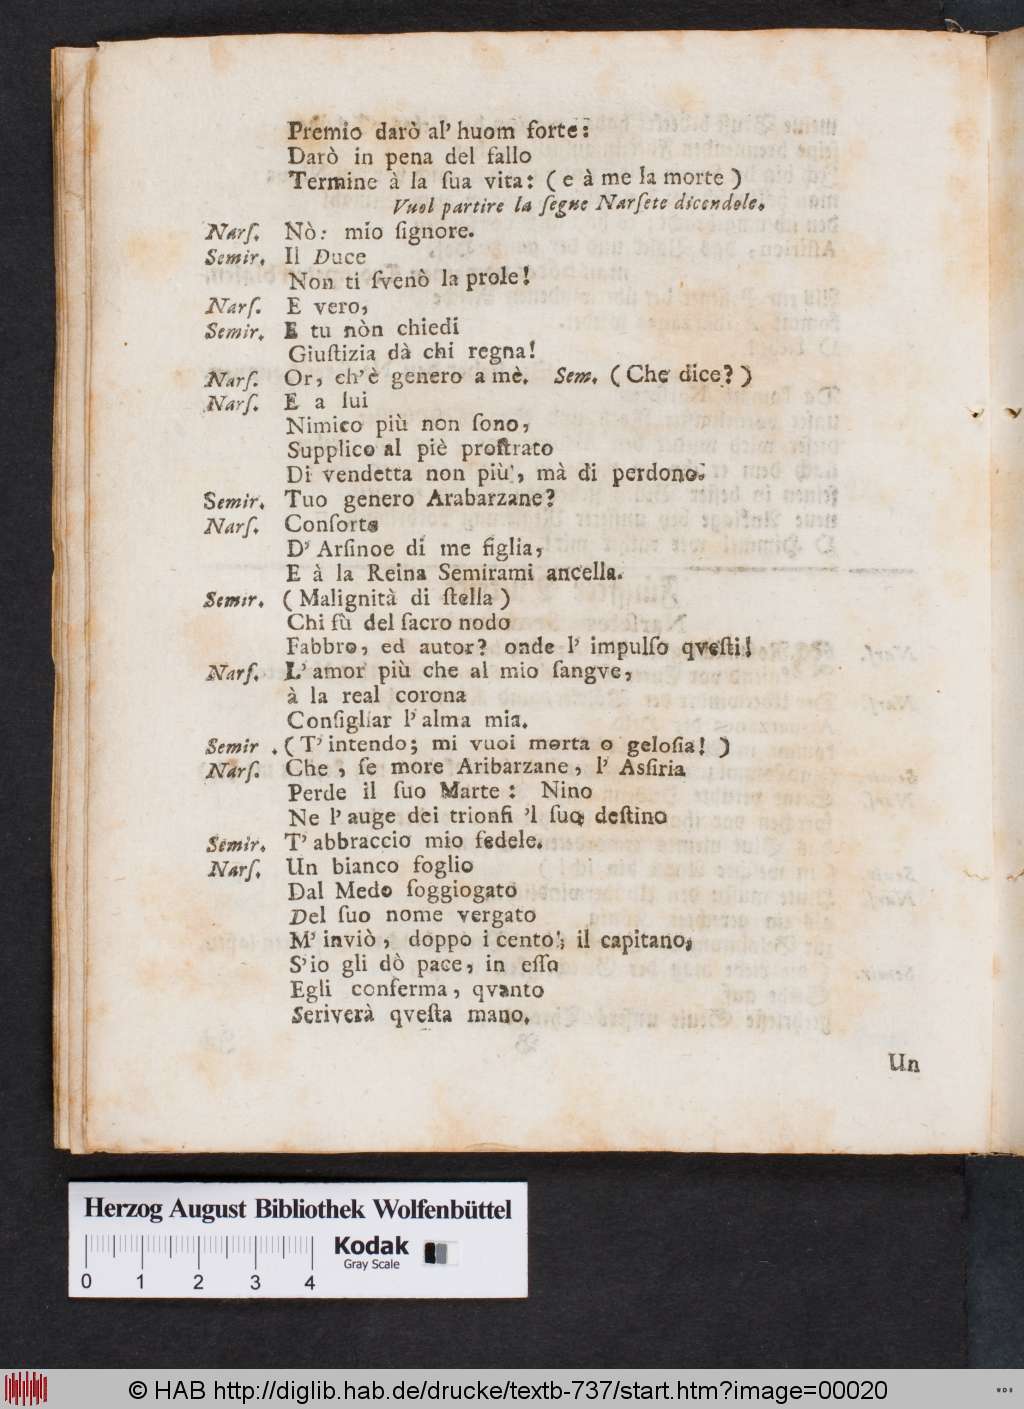 Premio darò al' huom forte:
Darò in pena del fallo
Termine à la ſua vita: ( e à me la morte )
Vuol partire la ſegue Narſete dicendole.
Narſ. Nò: mio ſignore.
Semir. Il Duce
Non ti ſvenò la prole!
Narſ. E vero,
Semir. E tu nòn chiedi
Giuſtizia dà chi regna!
Narſ. Or, ch'è genero a mè. Sem. ( Che dice? )
Narſ. E a lui
Nimico più non ſono,
Supplico al piè proſtrato
Di vendetta non più', mà di perdono.
Semir. Tuo genero Arabarzane?
Narſ. Conſorte
D' Arſinoe di me figlia,
E à la Reina Semirami ancella.
Semir. ( Malignità di ſtella )
Chi fù del ſacro nodo
Fabbro, ed autor? onde l' impulſo qveſti!
Narſ. L' amor più che al mio ſangve,
à la real corona
Conſigliar l' alma mia.
Semir . ( T' intendo; mi vuoi morta o geloſia! )
Narſ. Che , ſe more Aribarzane, l' Aſſiria
Perde il ſuo Marte: Nino
Ne l' auge dei trionfi 'l ſuo deſtino
Semir. T' abbraccio mio fedele.
Narſ. Un bianco foglio
Dal Medo ſoggiogato
Del ſuo nome vergato
M' inviò, doppo i cento', il capitano,
S'io gli dò pace, in eſſo
Egli conferma, qvanto
Seriverà qveſta mano.
Un
Herzog August Bibliothek Wolfenbüttel
Kodak
Gray Scale
0 1 2 3 4
© HAB http://diglib.hab.de/drucke/textb-737/start.htm?image=00020